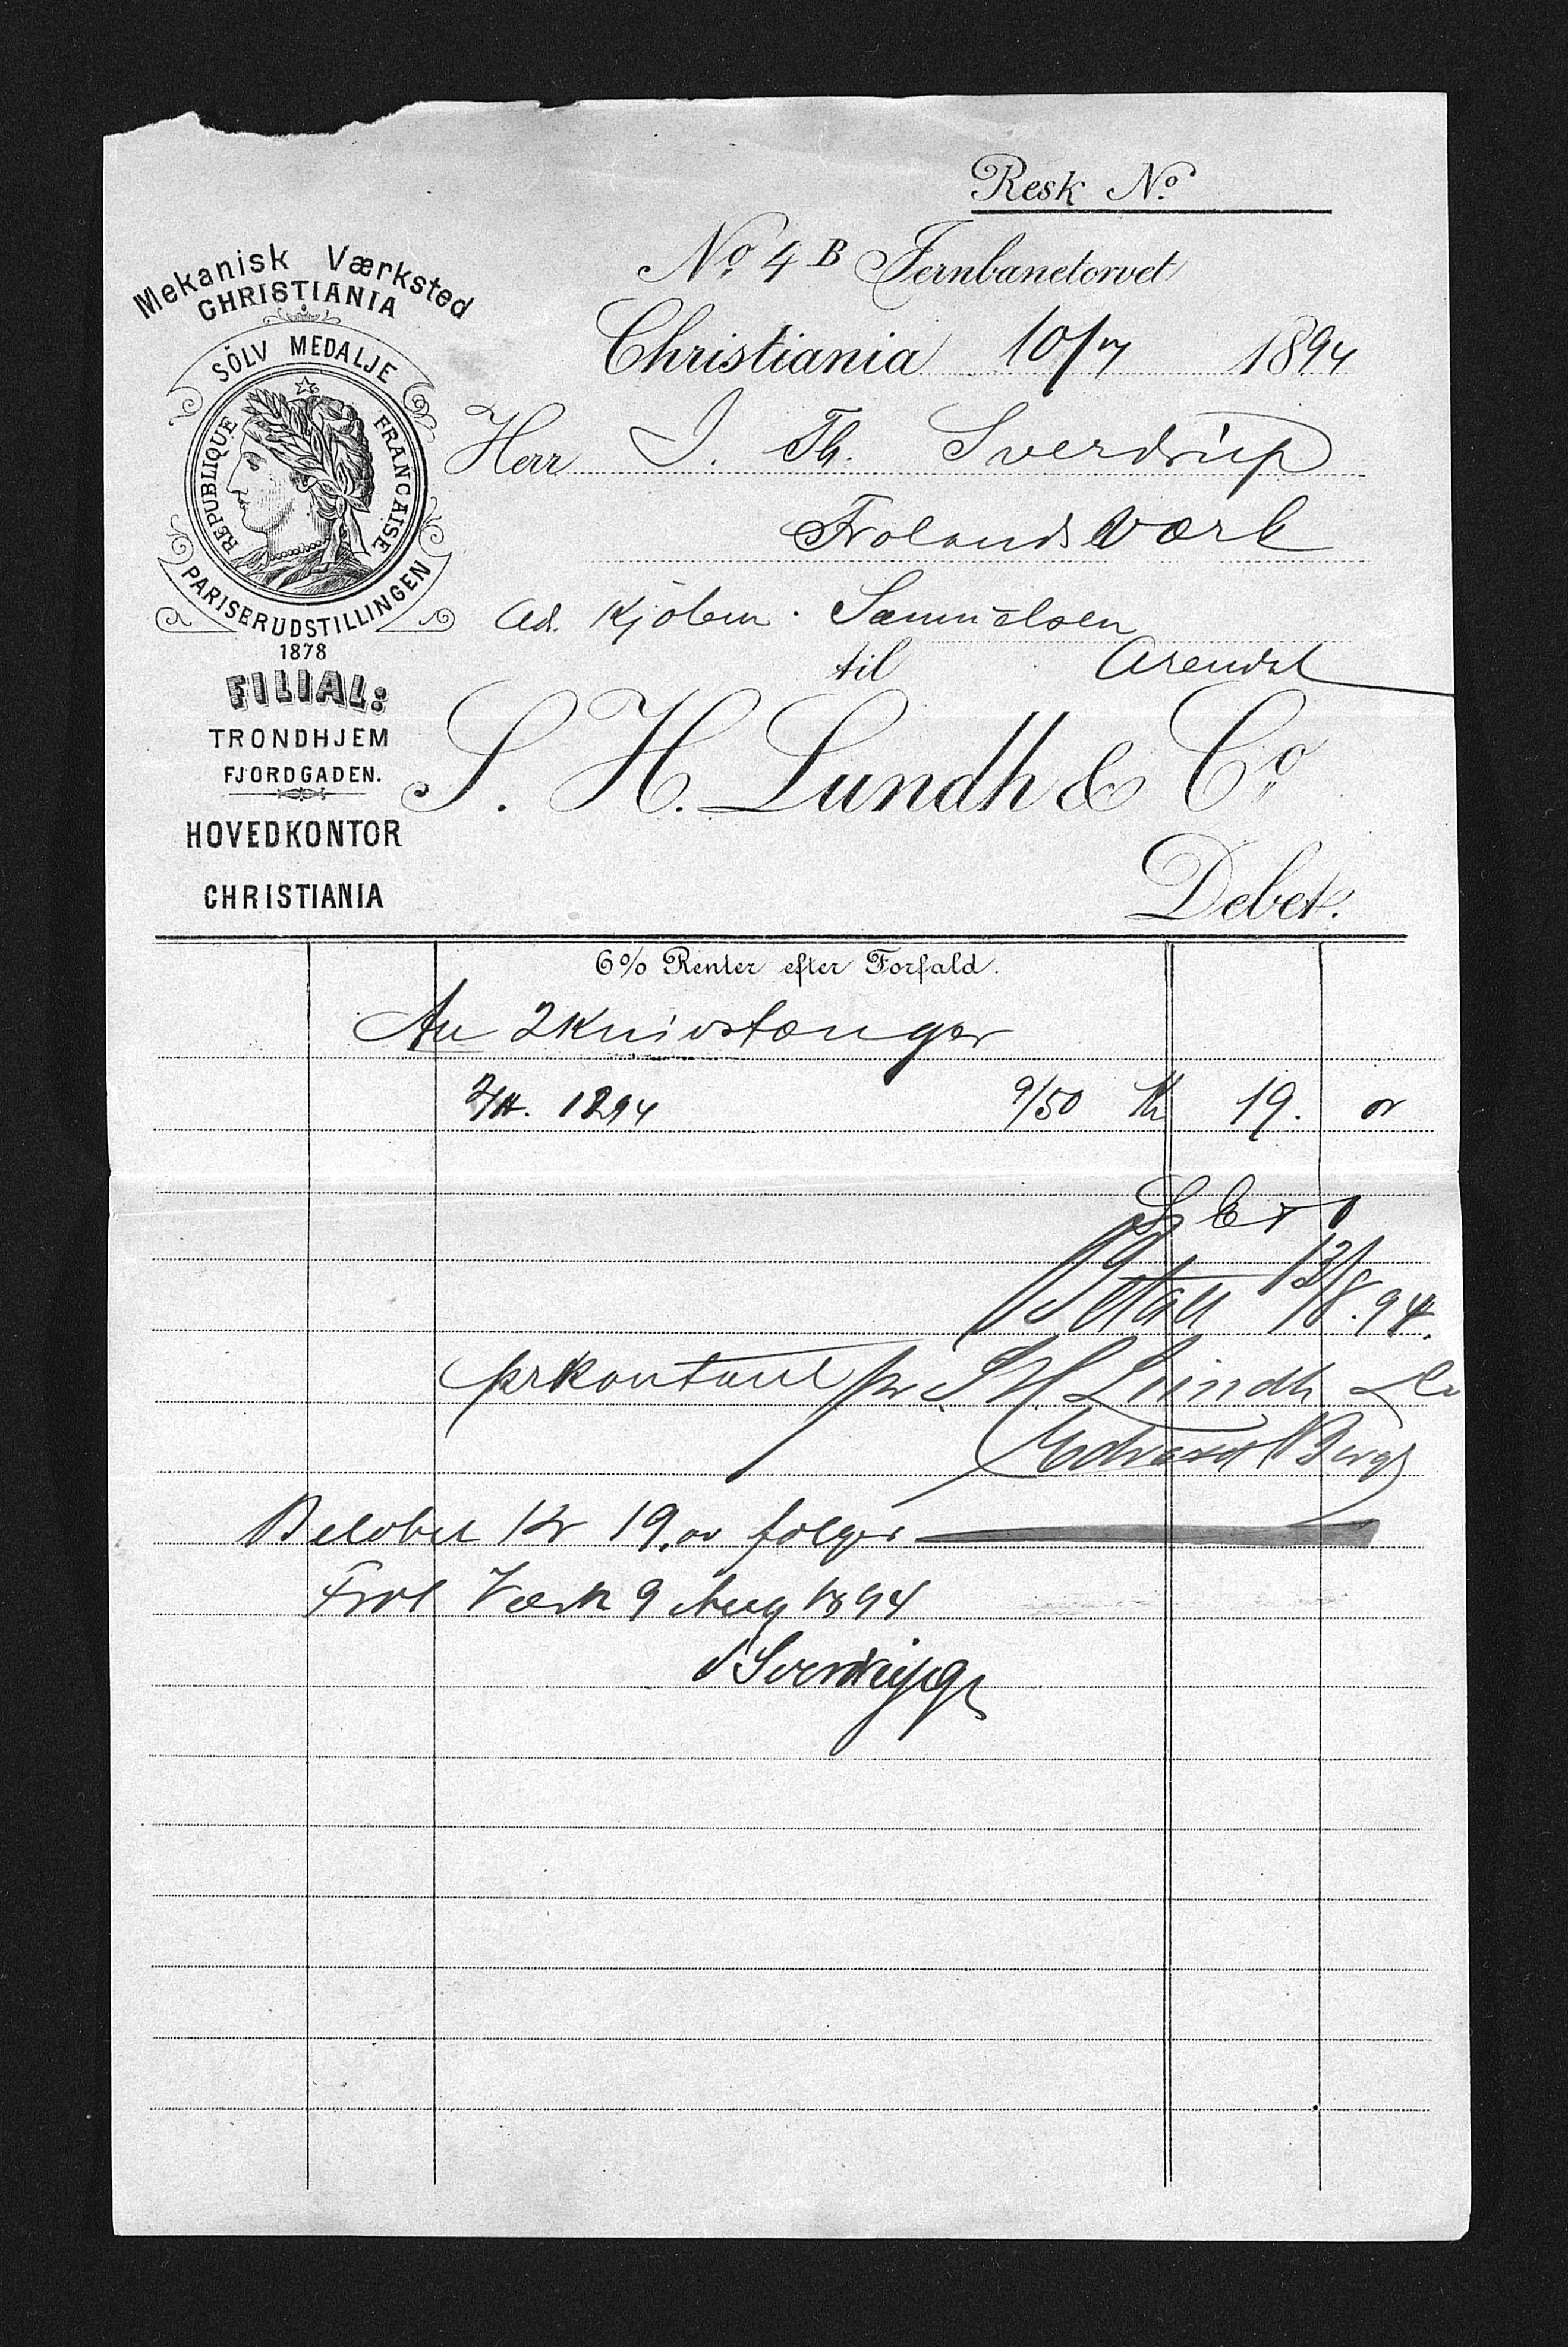 Resk No.
No. 4 B Jernbanetorvet
Mekanisk Værksted
CHRISTIANIA
SÖLV MEDALJE
REPUBLIQUE FRANCAISE
PARISERUDSTILLINGEN
1878
FILIAL:
TRONDHJEM
FJORDGADEN.
HOVEDKONTOR
CHRISTIANIA
Christiania 10/7 1894
Herr J. Th. Sverdrup
Frolands Værk
Ad. Kjöbm. Samuelsen
til Arendal
S. H. Lundh & Co.
Debet.
6% Renter efter Forfald.
An 2 Knivstænger
1894 9/50 Kr 19. 00
Betalt 13/8. 94.
pr kontant pr S. H. Lundh & Co
Edvard Berg
Belöbet Kr 19.00 fölger
Frol Værk 9 Aug 1894
Sverdrup